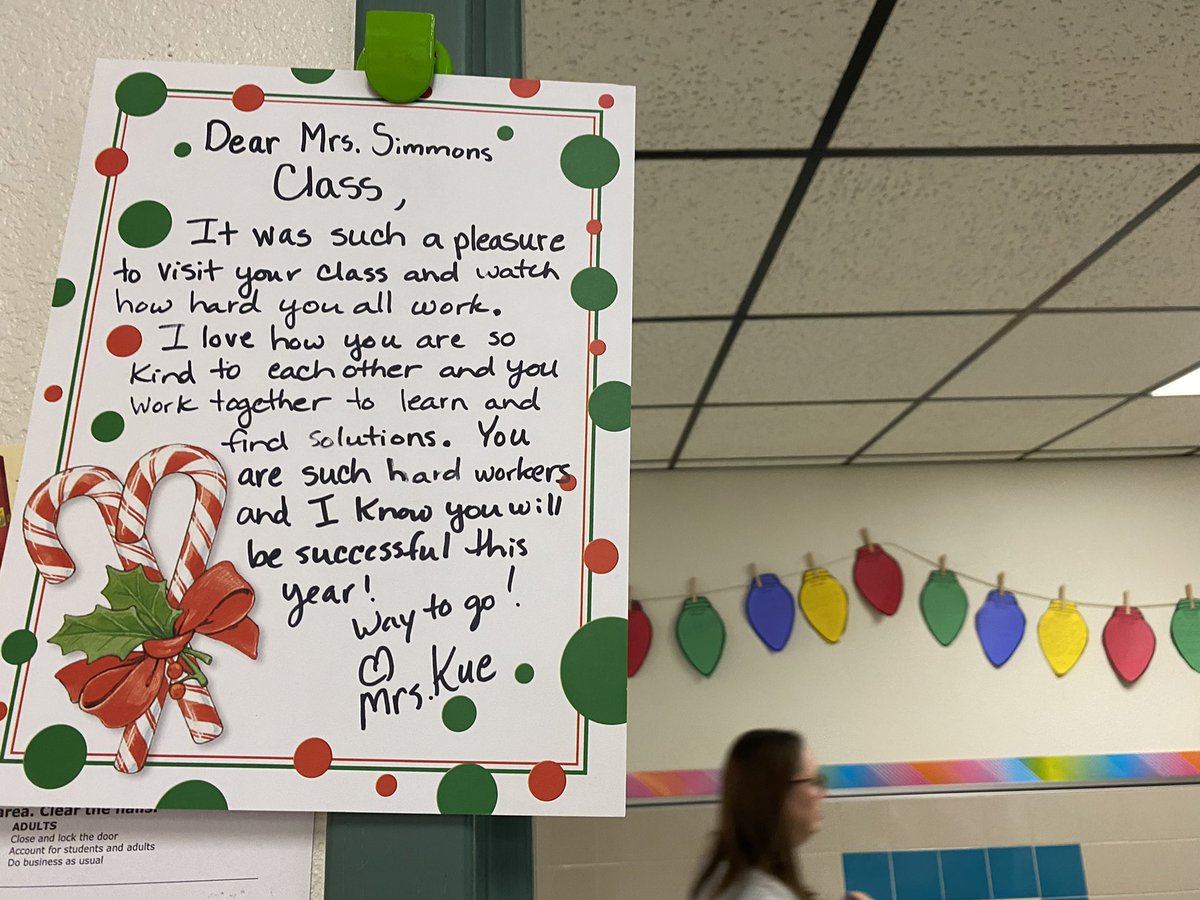 Dear Mrs. Simmons
Class,
It was such a pleasure
to visit your class and watch
how hard you all work.
I love how you are so
kind to each other and you
work together to learn and
find solutions. You
are such hard workers
and I know you will
be successful this
year!
Way to go!
♡ Mrs. Kue
area. Clear the halls.
ADULTS
Close and lock the door
Account for students and adults
Do business as usual